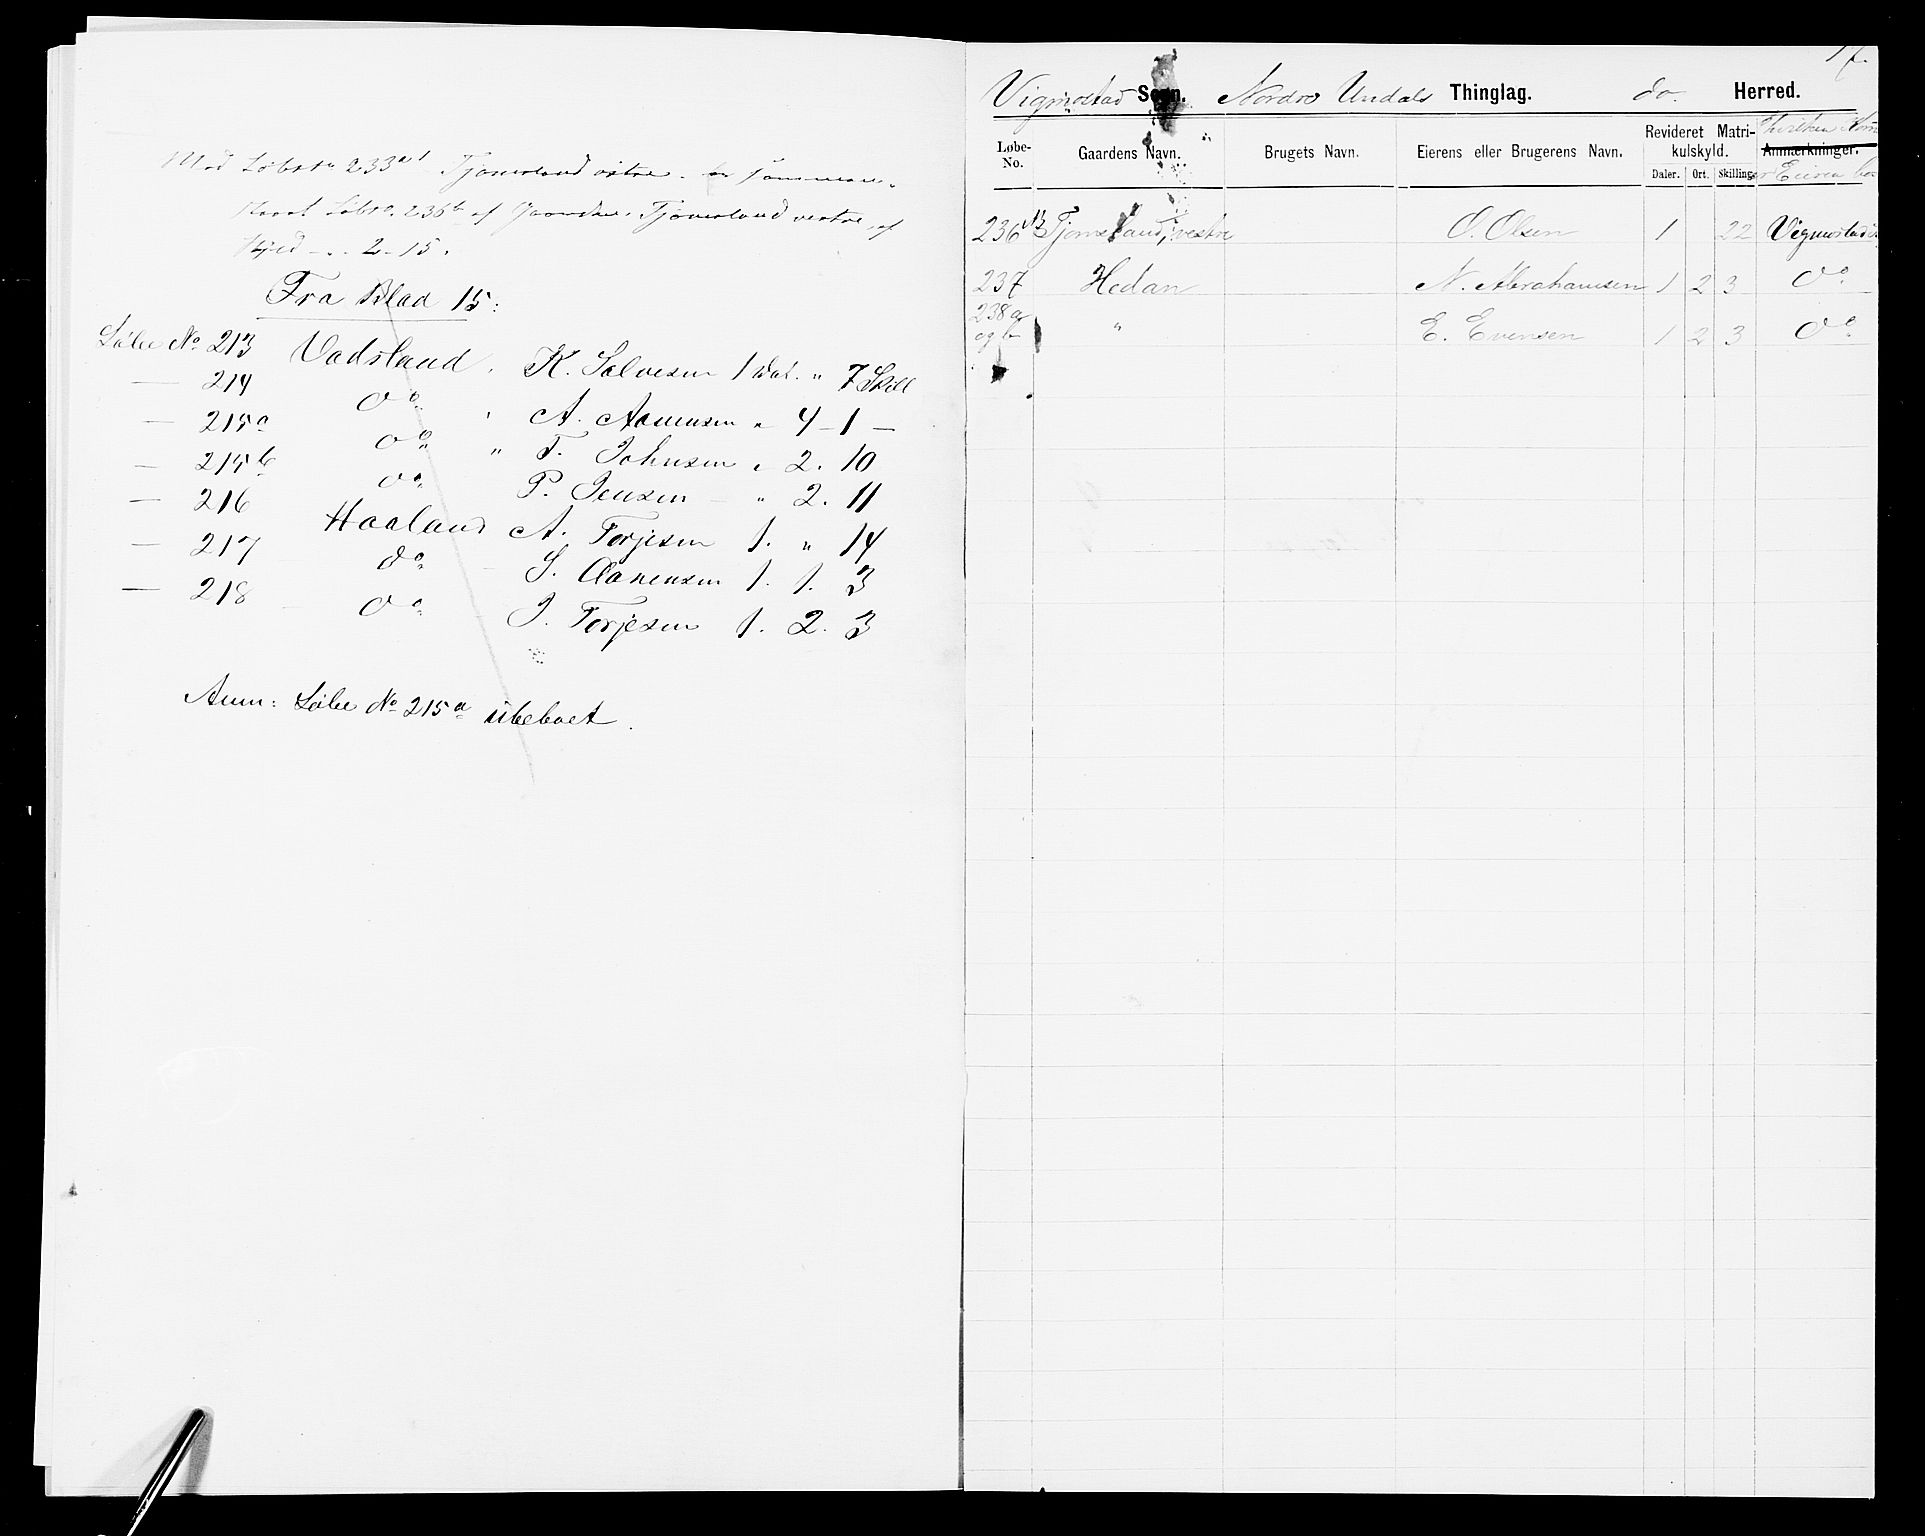 Med Løbe No 233 a 1 Tjomsland østre er sammen-
slaaet Løbe No. 236 b af Gaarden Tjomsland vestre, af
Skyld - . . 2 - 15.
Fra Blad 15:
Løbe No. 213 Vodsland, K. Salvesen 1 Dal. " 7 Skill
— 214 Do. " A. Aanensen " 4 - 1 —
— 215a Do. " T. Johnsen " 2. 10
— 215b Do. P. Jensen — " 2. 11
— 216 Haaland A. Torjesen 1. " 14
— 217 Do. S. Aanensen 1. 1. 3
— 218 Do. J. Torjesen 1. 2. 3
Anm: Løbe No. 215a ubeboet.
17.
Vigmostad Sogn. Nordre Undals Thinglag. do. Herred.
Løbe-No. Gaardens Navn. Brugets Navn. Eierens eller Brugerens Navn. Revideret Matrikulskyld. Anmærkninger.
Daler. Ort. Skilling. Eieren bor
236 Tjomsland, vestre O. Olsen 1 22 Vigmostad
237 Hedan N. Abrahamsen 1 2 3 Do.
238 a og b " E. Evensen 1 2 3 Do.